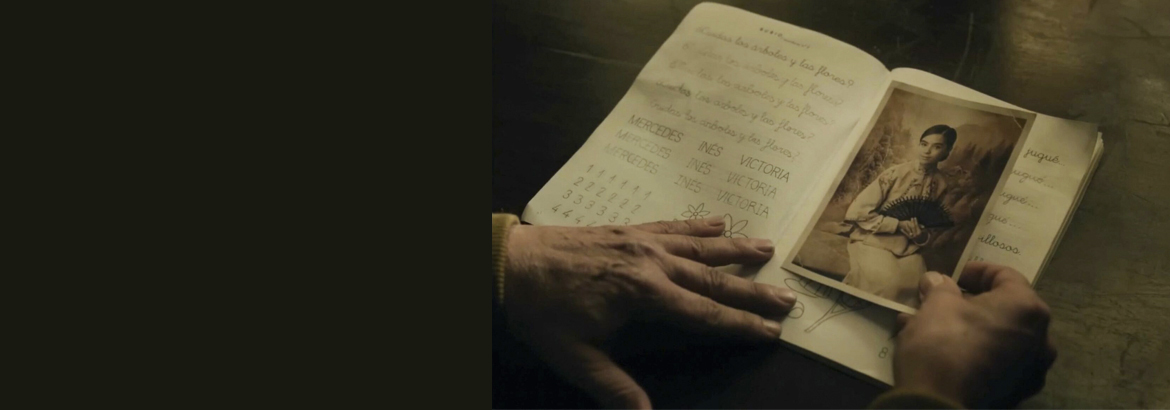 ¿Cuidas los árboles y las flores?
¿Cuidas los árboles y las flores?
¿Cuidas los árboles y las flores?
¿Cuidas los árboles y las flores?
¿Cuidas los árboles y las flores?
MERCEDES INÉS VICTORIA
MERCEDES INÉS VICTORIA
MERCEDES INÉS VICTORIA
1 1 1 1 1 1
2 2 2 2 2 2
3 3 3 3 3 3
4 4 4
8
jugué
ullosos